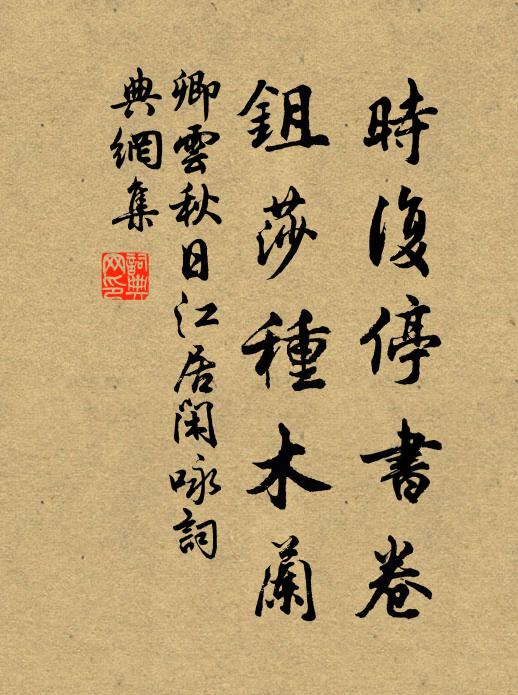 時復停書卷
鉏莎種木蘭
卿雲秋日江居閑咏詞
典網集
詞典
网印